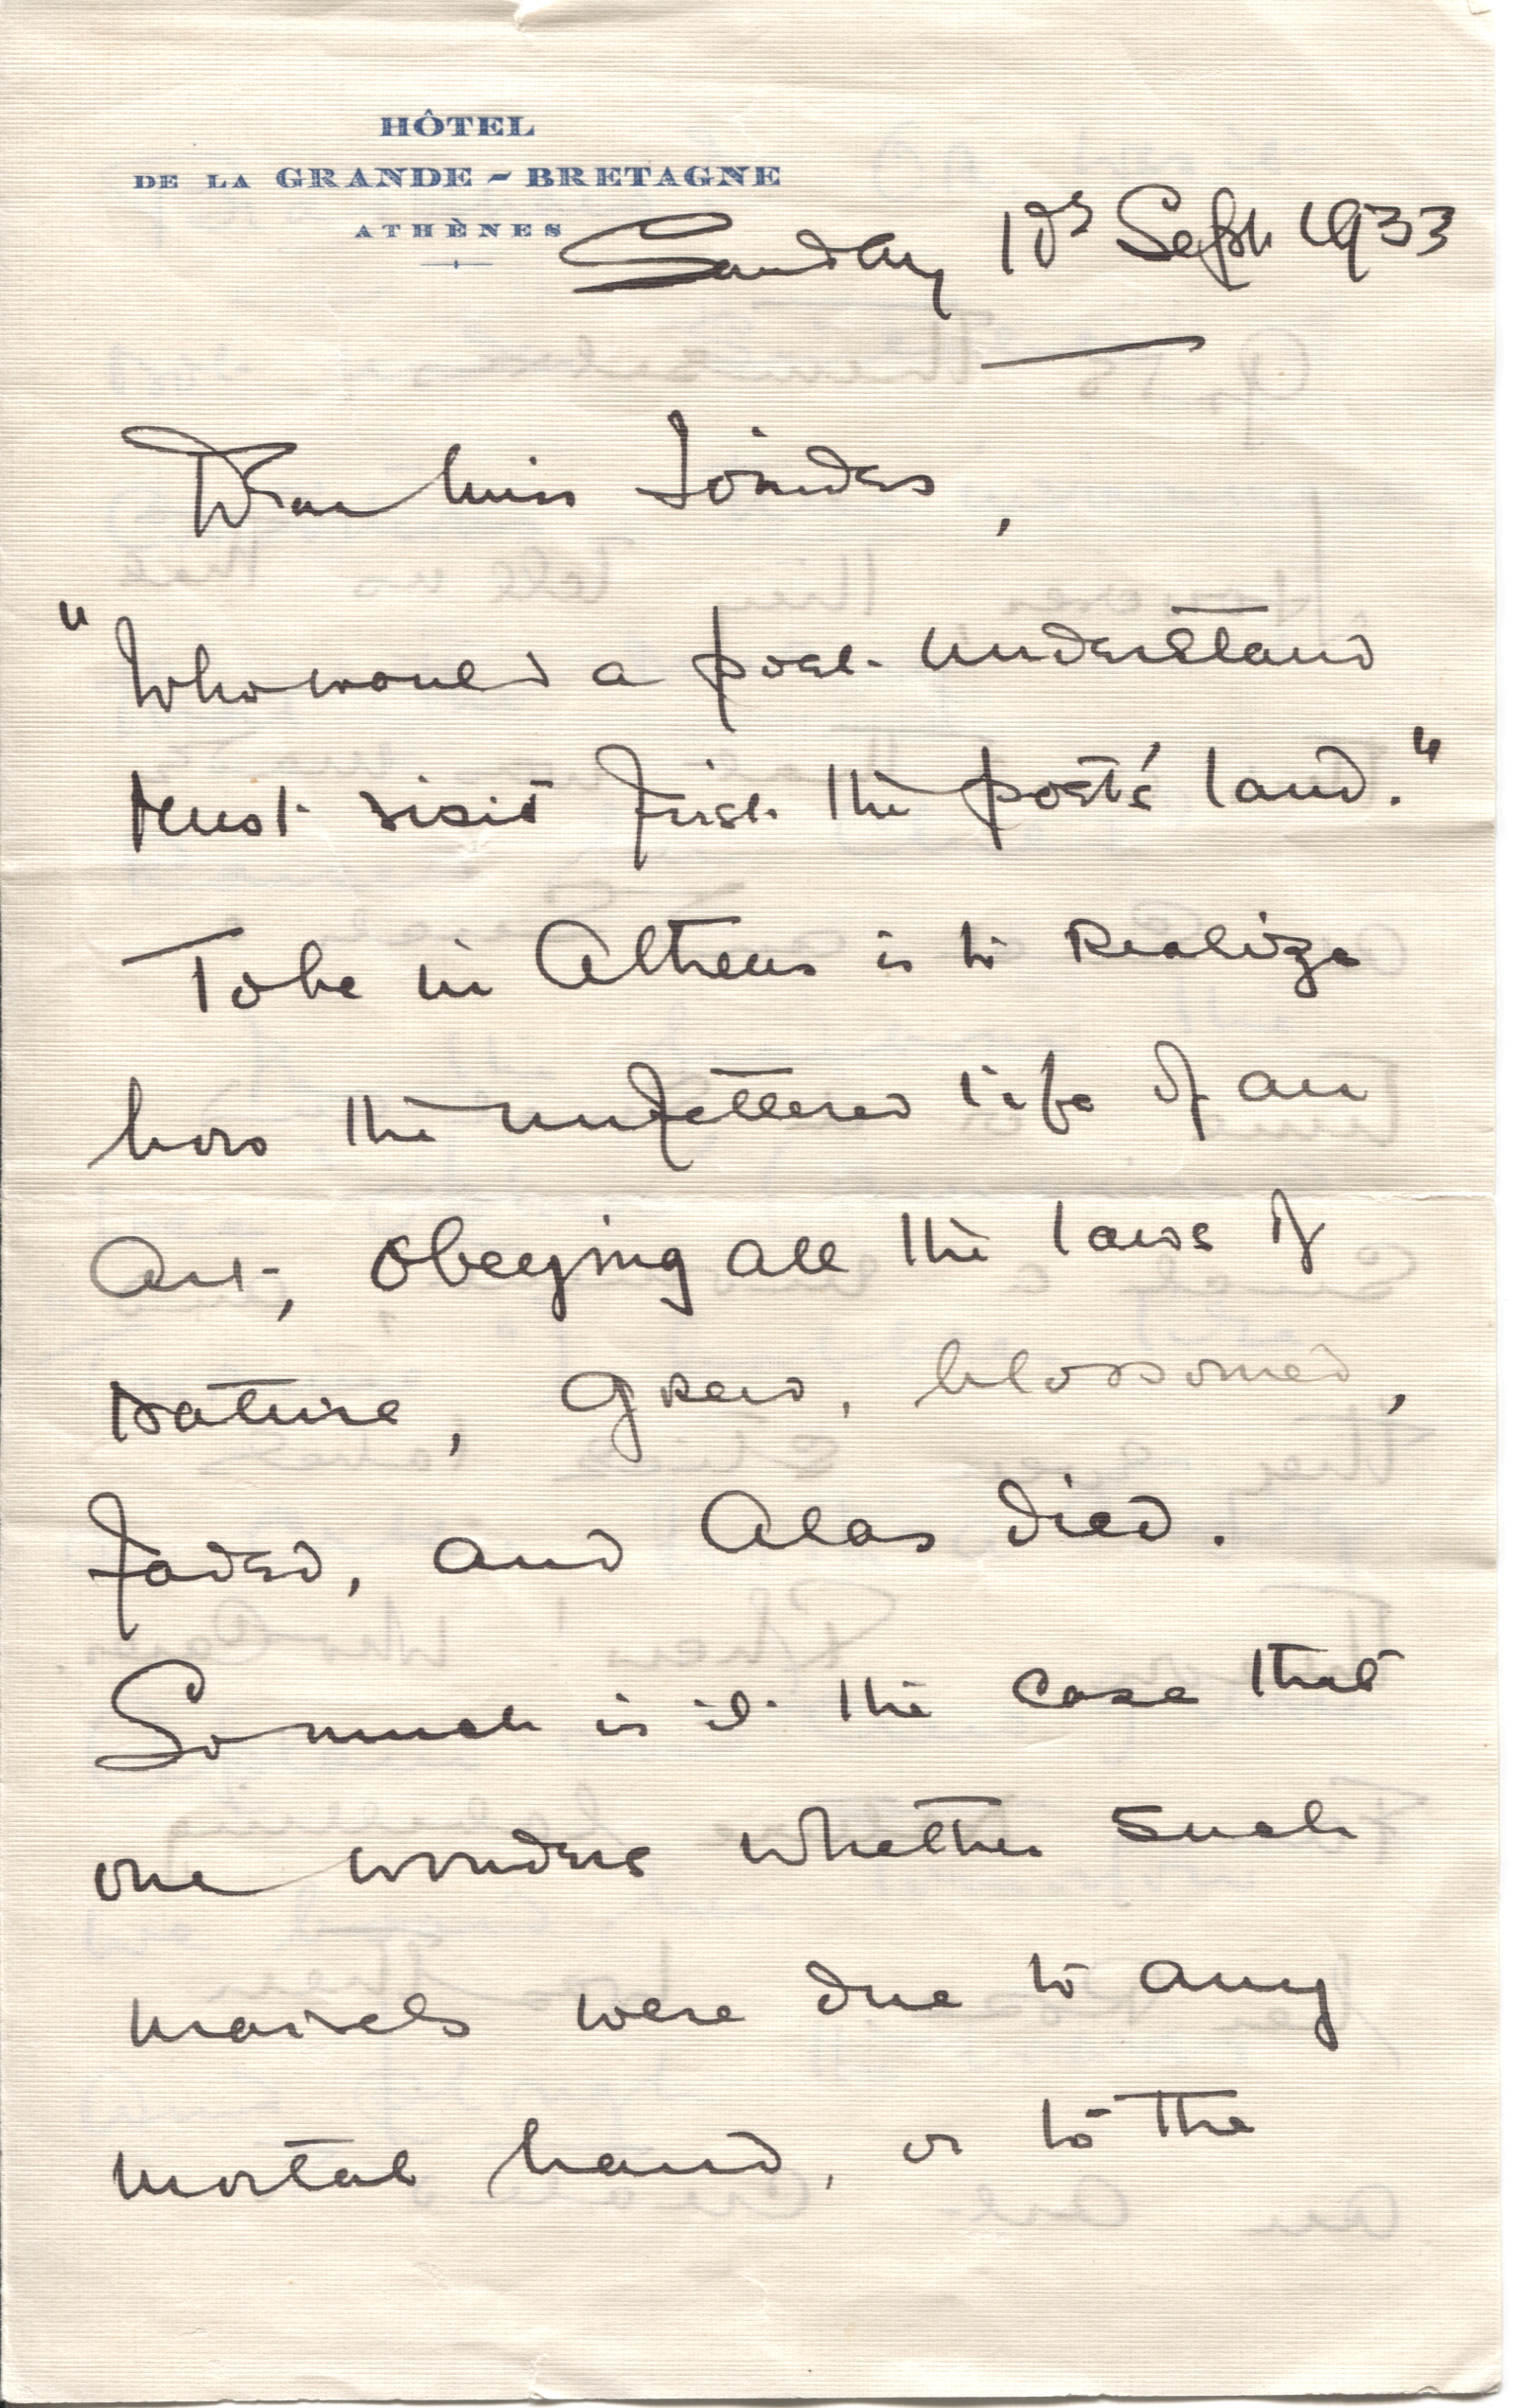 HÔTEL
DE LA GRANDE - BRETAGNE
ATHÈNES
Sunday Sept. 1933
Dear Miss Ionides,
"Who would a poet understand
Must visit first the poet's land."
To be in Athens is to Realize
how the unfettered life of an
Art, obeying all the laws of
Nature, grew, blossomed,
faded, and Alas died.
So much is it the case that
one wonders whether such
marvels were due to any
mortal hand, or to the